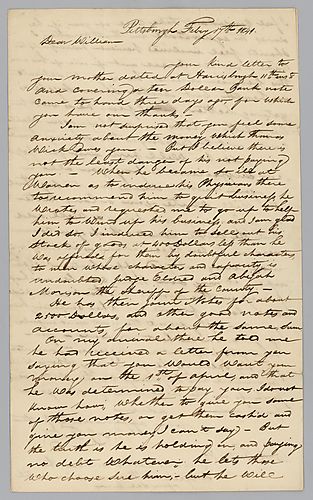 Pittsburgh Feby 17th 1841.
Dear William
your kind letter to
your Mother dated at Harrisburgh 11th inst
and Covering a ten Dollar Bank note
came to hand three days ago for which
you have our thanks,
I am not surprised that you feel some
anxiety about the money which Thomas
owes you — But I believe there is
not the least danger of his not paying
you — When he became so ill at
Warren as to induce his Physicians there
to recommend him to quit business, he
wrote and requested me to go up to help
him to Wind up his business, and I am glad
I did so. I induced him to sell out his
Stock of goods at 400 Dollars less than he
was offered for them by doubtful characters
to men whose character and capacity is
undoubted, and Abijah
Morrison the Sheriff of the County —
He has their joint Notes for about
2100 Dollars, and other good notes and
accounts, for about the same sum
On my arrival there he told me
he had received a letter from you
saying that you would want your
money, on the 1st of April, and that
he was determined to pay you, I do not
know how, whether to give you some
of those notes, or get them Cashd and
give you money I can't say) — But
the truth is he is holding on, and paying
no debt whatever, he lets those
who choose sue him, — but he will